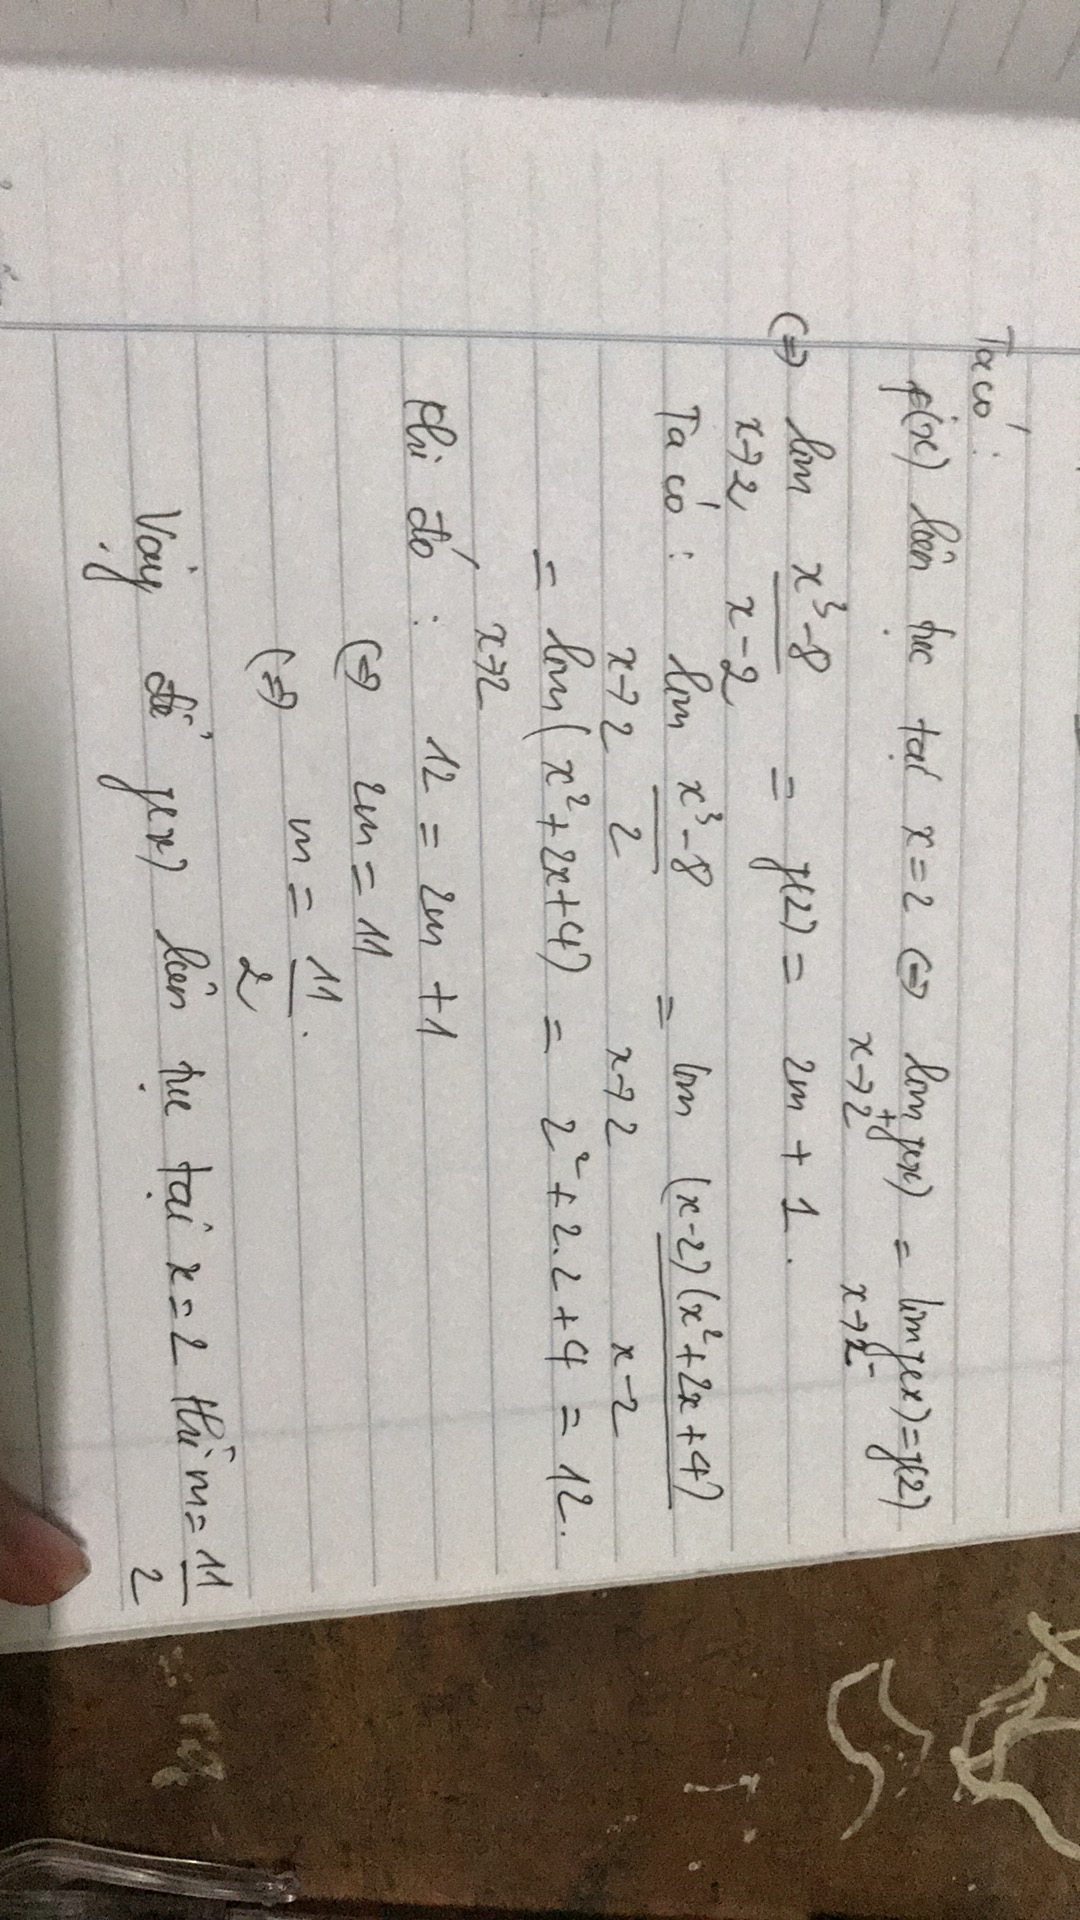 Ta có:
f(x) liên tục tại x = 2 (=) lim f(x) = lim f(x) = f(2)
x→2⁺ x→2⁻
(=) lim x³-8 = f(2) = 2m + 1.
x→2 x-2
Ta có: lim x³-8 = lim (x-2)(x²+2x+4)
x→2 2 x→2 x-2
= lim (x²+2x+4) = 2²+2.2+4 = 12.
x→2
Khi đó: 12 = 2m + 1
(=) 2m = 11
(=) m = 11.
2
Vậy để f(x) liên tục tại x = 2 thì m = 11
2